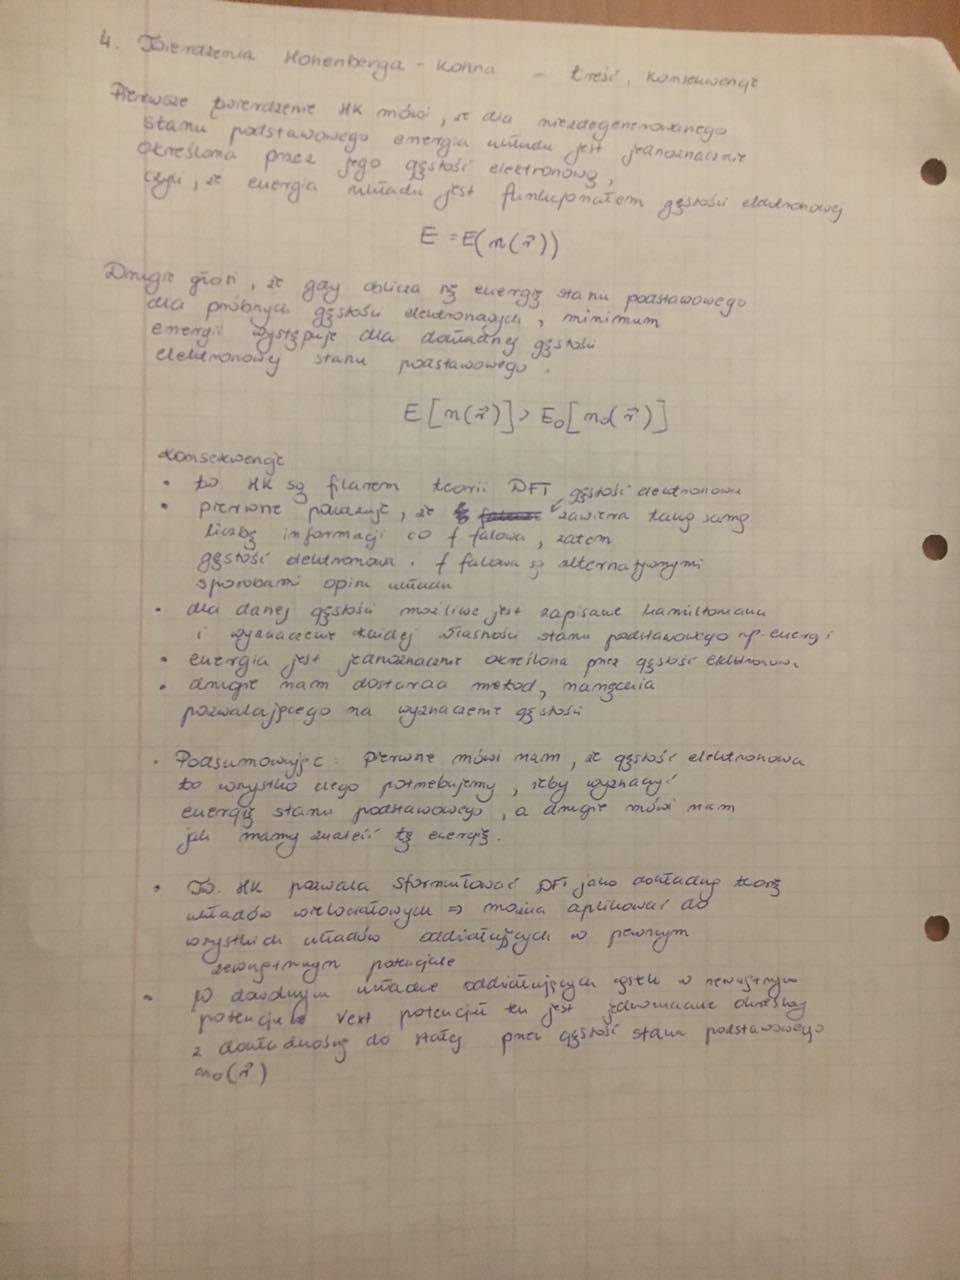 4. Twierdzenia Hohenberga - Kohna - treść, konsekwencje
Pierwsze twierdzenie HK mówi, że dla niezdegenerowanego
stanu podstawowego energia układu jest jednoznacznie
określona przez jego gęstość elektronową,
czyli, że energia układu jest funkcjonałem gęstości elektronowej
E = E(n(r⃗))
Drugie głosi, że gdy oblicza się energię stanu podstawowego
dla próbnych gęstości elektronowych, minimum
energii występuje dla dokładnej gęstości
elektronowej stanu podstawowego.
E[n(r⃗)] > E₀[n₀(r⃗)]
Konsekwencje
• tw. HK są filarem teorii DFT
gęstość elektronowa
• pierwsze pokazuje, że zawiera taką samą
liczbę informacji co f falowa, zatem
gęstość elektronowa i f falowa są alternatywnymi
sposobami opisu układu
• dla danej gęstości możliwe jest zapisanie hamiltonianu
i wyznaczenie każdej własności stanu podstawowego np. energii
• energia jest jednoznacznie określona przez gęstość elektronową
• drugie nam dostarcza metod, narzędzia
pozwalającego na wyznaczenie gęstości
• Podsumowując: pierwsze mówi nam, że gęstość elektronowa
to wszystko czego potrzebujemy, żeby wyznaczyć
energię stanu podstawowego, a drugie mówi nam
jak mamy znaleźć tę energię.
• Tw. HK pozwala sformułować DFT jako dokładną teorię
układów wielociałowych => można aplikować do
wszystkich układów oddziałujących w pewnym
zewnętrznym potencjale
• W dowolnym układzie oddziałujących cząstek w zewnętrznym
potencjale Vext potencjał ten jest jednoznacznie określony
z dokładnością do stałej przez gęstość stanu podstawowego
n₀(r⃗)